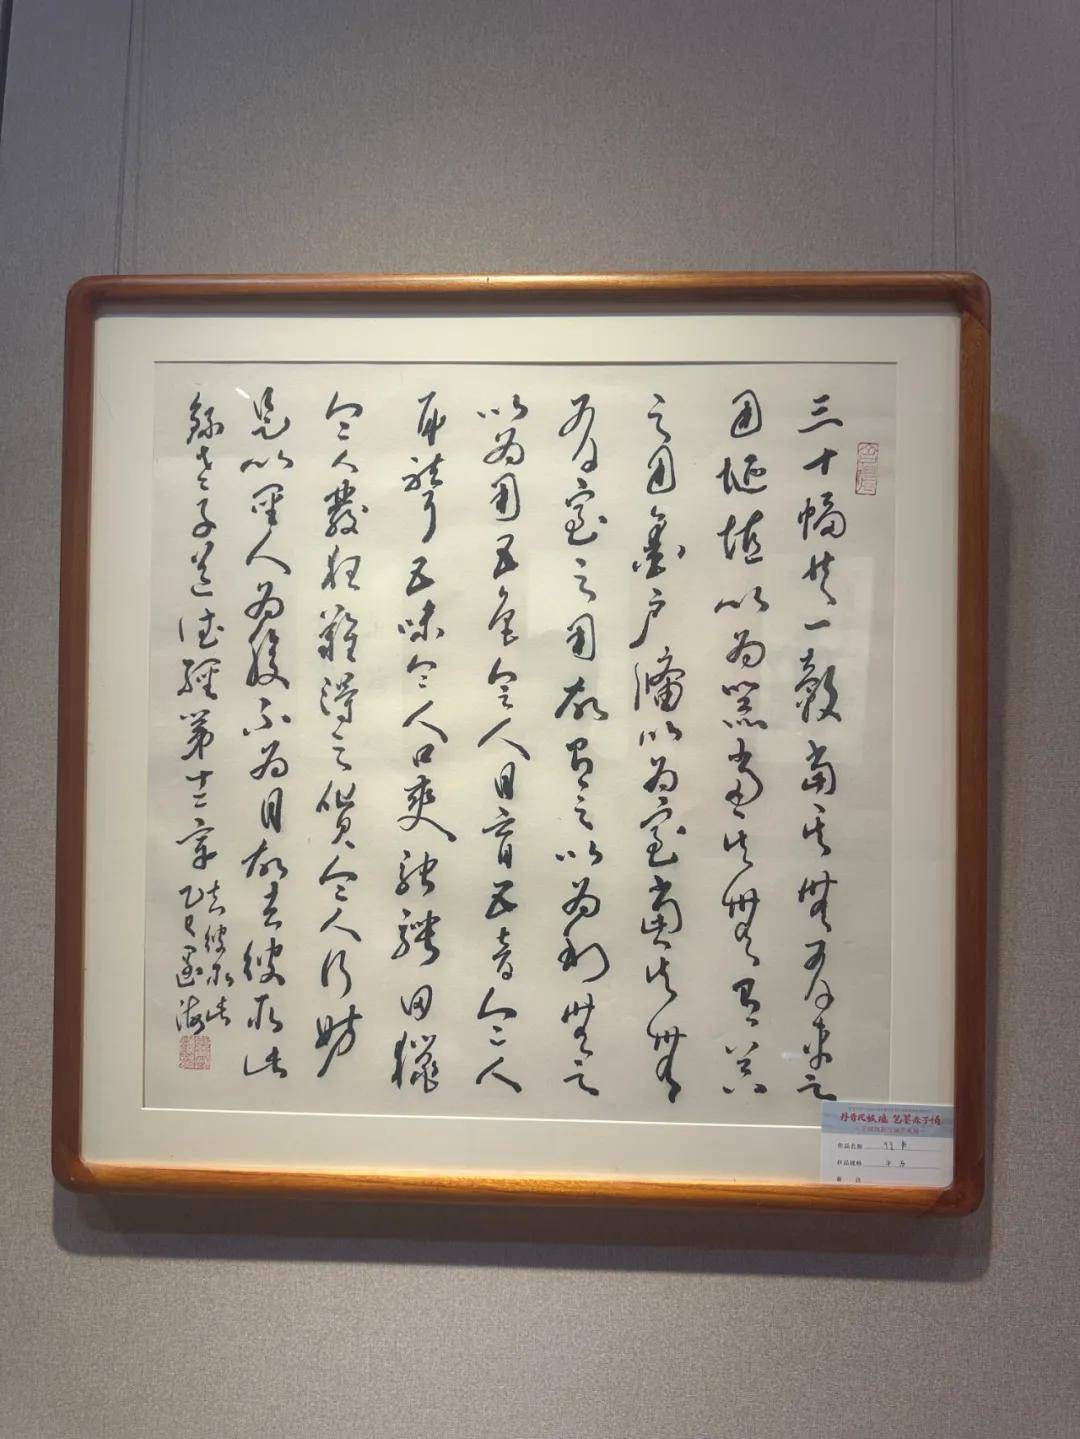 三十幅共一轂當其無有車之
用埏埴以為器當其無有器
之用鑿户牖以為室當其無
有室之用故有之以為利無之
以為用五色令人目盲五音令人
耳聾五味令人口爽馳騁田獵
令人發狂難得之貨令人行妨
是以聖人為腹不為目故去彼取此
錄老子道德經第十二章
去彼取此
乙巳
丹青 笔墨赤子情
作品名称 行书
作品规格